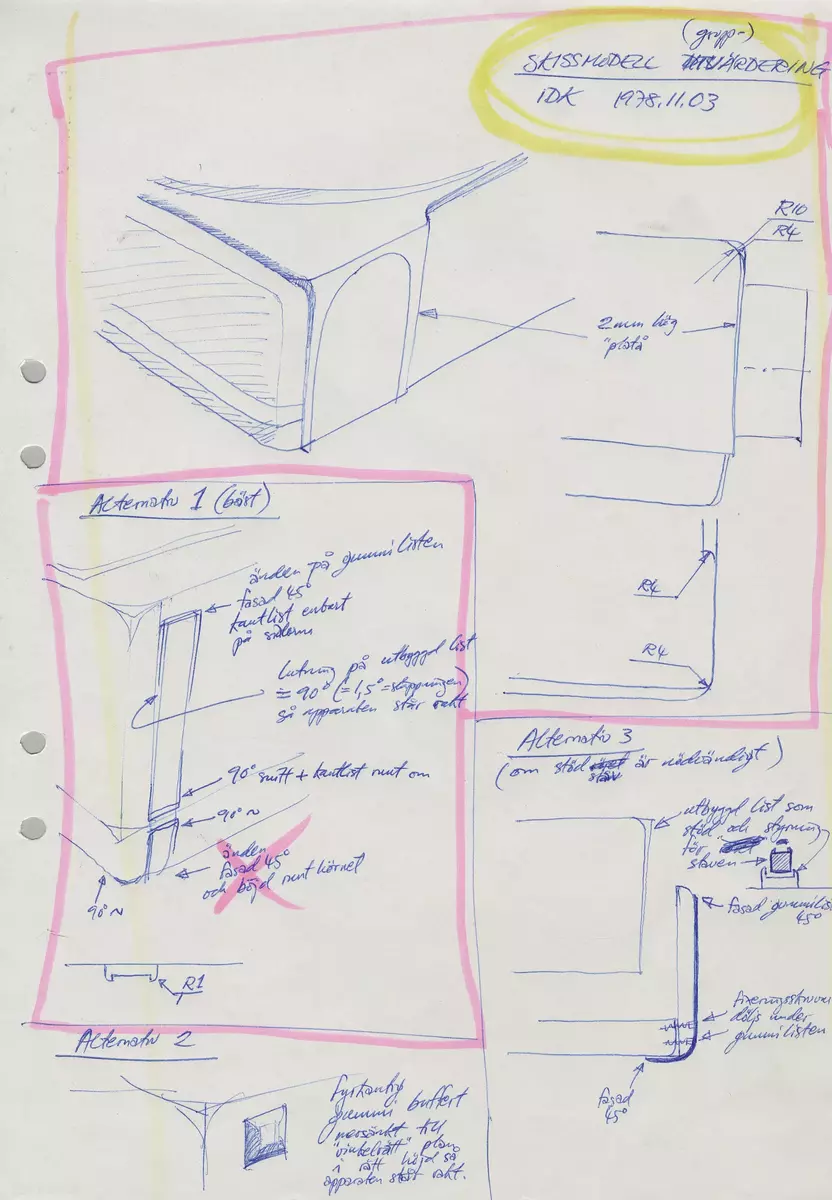 (grupp-)
SKISSMODELL UTVÄRDERING
IDK 1978.11.03
R10
R4
2mm hög
"platå
Alternativ 1 (bäst)
änden på gummilisten
fasad 45°
kantlist enbart
på sidorna
Lutning på utbyggd list
= 90° (= 1,5° = släppningen)
så apparaten står rakt
90° snitt + kantlist runt om
90° ~
änden
fasad 45°
och böjd runt hörnet
90° ~
R1
R4
R4
Alternativ 2
Fyrkantig
gummi buffert
nersänkt till
"vinkelrätt" plan
i rätt höjd så
apparaten står rakt.
Alternativ 3
(om stöd är nödvändigt)
stäv
utbyggd list som
stöd och styrning
för
staven
fasad gummilist
45°
fixeringsskruvar
döljs under
gummilisten
fasad
45°